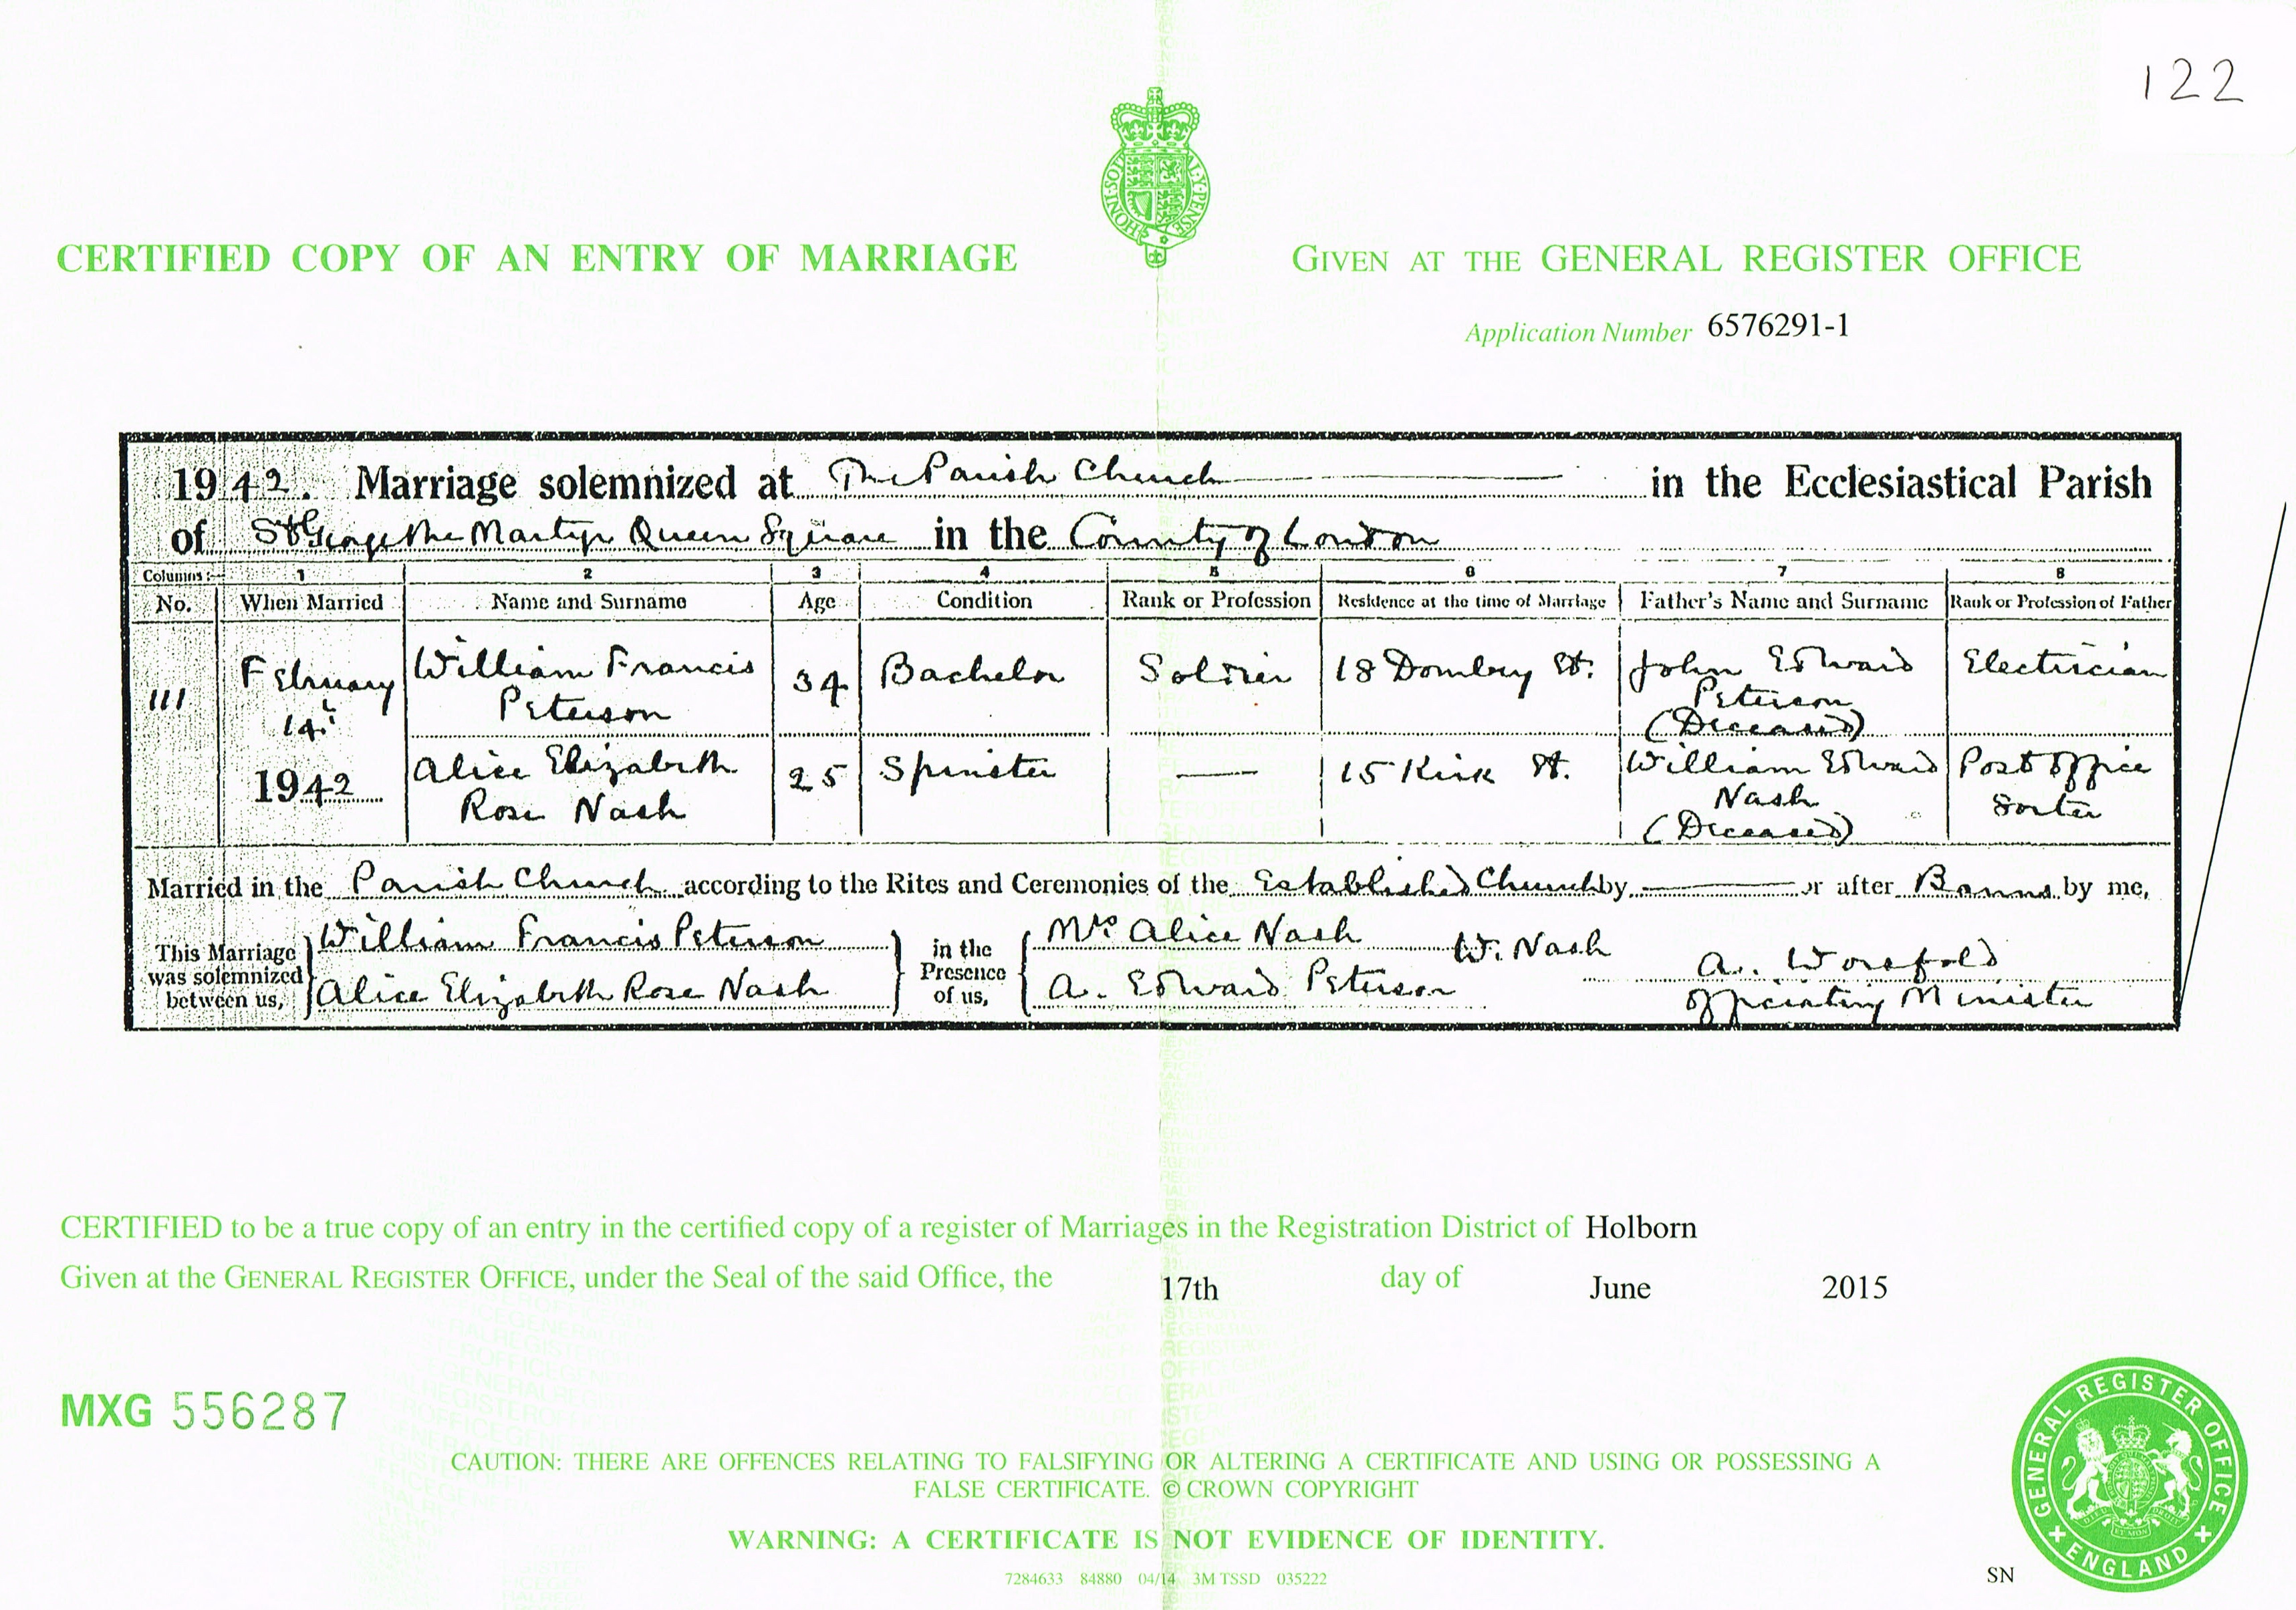 122
HONI·SOIT·QUI·MAL·Y·PENSE
CERTIFIED COPY OF AN ENTRY OF MARRIAGE
GIVEN AT THE GENERAL REGISTER OFFICE
Application Number 6576291-1
1942. Marriage solemnized at The Parish Church in the Ecclesiastical Parish
of St George the Martyr Queen Square in the County of London
Columns:— 1 2 3 4 5 6 7 8
No. When Married Name and Surname Age Condition Rank or Profession Residence at the time of Marriage Father's Name and Surname Rank or Profession of Father
111 February 14th 1942
William Francis Peterson 34 Bachelor Soldier 18 Dombey St. John Edward Peterson (Deceased) Electrician
Alice Elizabeth Rose Nash 25 Spinster — 15 Kirk St. William Edward Nash (Deceased) Post Office Sorter
Married in the Parish Church according to the Rites and Ceremonies of the Established Church by — or after Banns by me,
This Marriage was solemnized between us,
William Francis Peterson
Alice Elizabeth Rose Nash
in the Presence of us,
Mrs Alice Nash W. Nash
A. Edward Peterson
A. Worsfold
Officiating Minister
CERTIFIED to be a true copy of an entry in the certified copy of a register of Marriages in the Registration District of Holborn
Given at the GENERAL REGISTER OFFICE, under the Seal of the said Office, the 17th day of June 2015
MXG 556287
CAUTION: THERE ARE OFFENCES RELATING TO FALSIFYING OR ALTERING A CERTIFICATE AND USING OR POSSESSING A
FALSE CERTIFICATE. © CROWN COPYRIGHT
WARNING: A CERTIFICATE IS NOT EVIDENCE OF IDENTITY.
7284633 84880 04/14 3M TSSD 035222
SN
GENERAL REGISTER OFFICE
ENGLAND